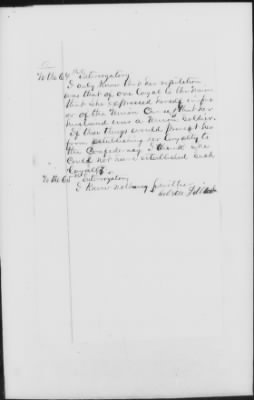 To the 64th Interrogatory
I only know that her reputation
was that of one loyal to the Union
that she expressed herself in fav
or of the Union Cause, & that her
husband was a Union Soldier.
If these things would prevent her
from establishing her loyalty to
the Confederacy I think she
could not have established such
loyalty.
To the 65th Interrogatory
I know nothing further